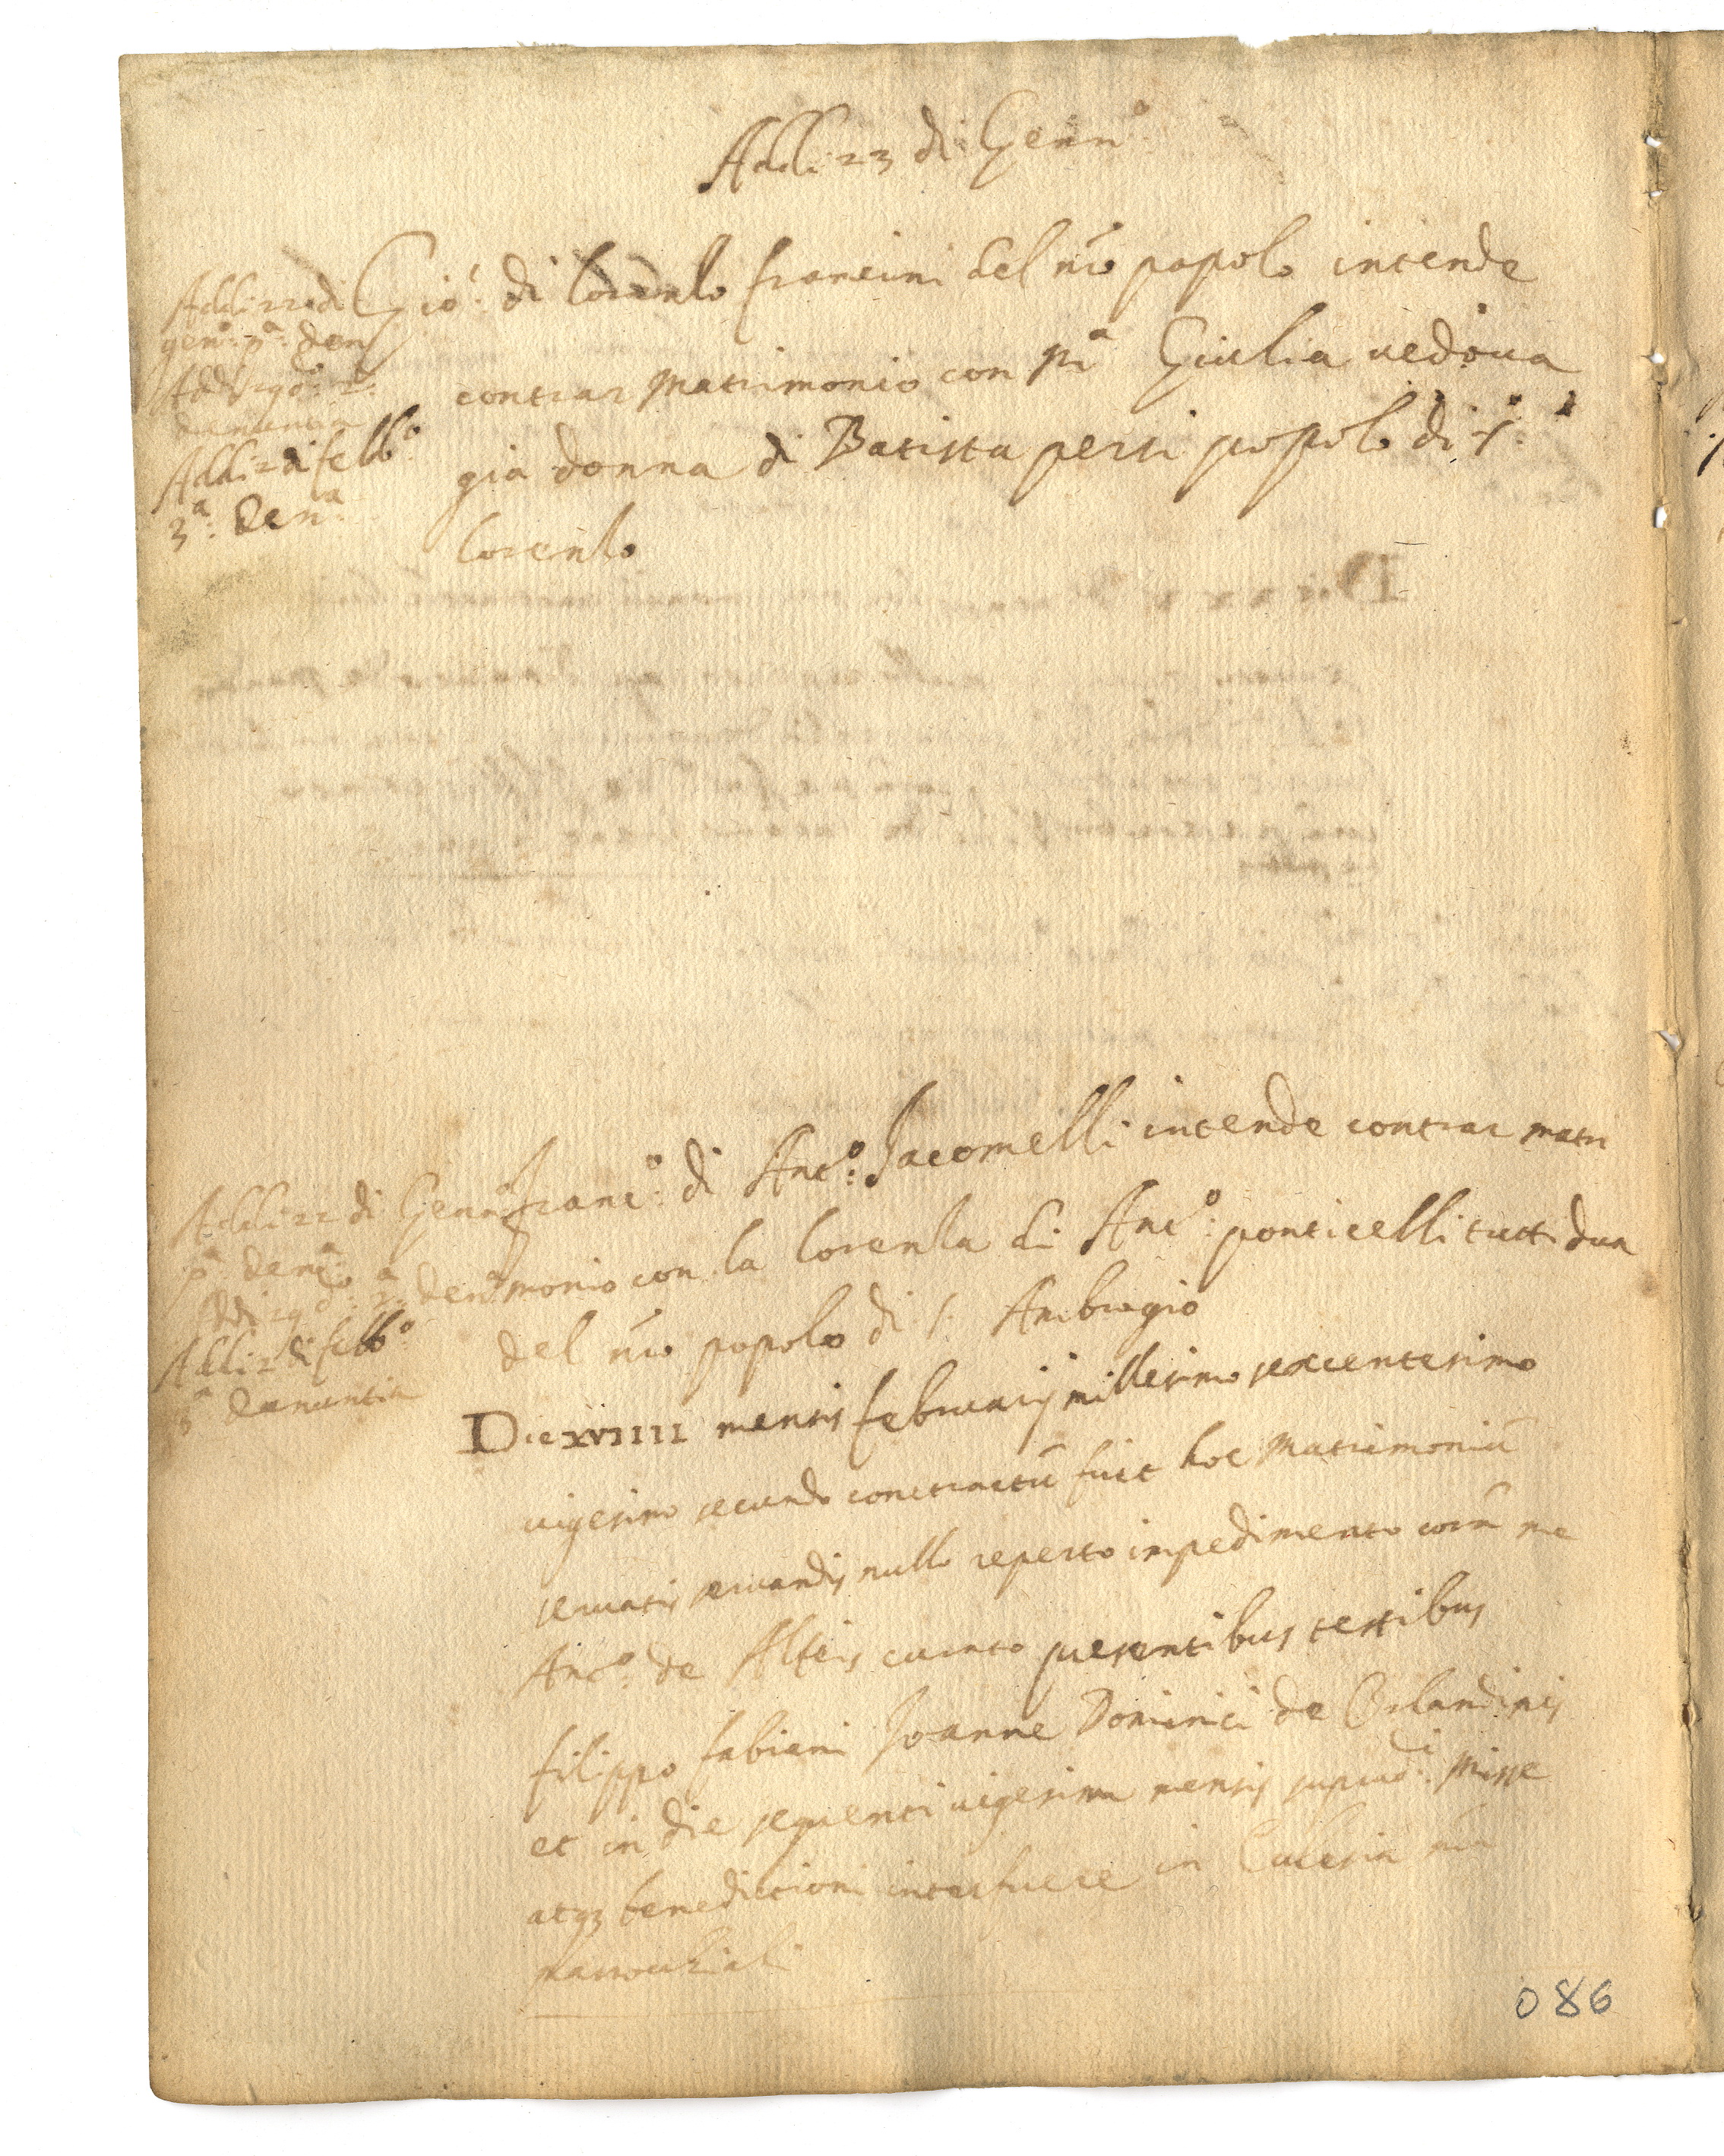 Addi 23 di Genn.o
Addi 22 di
gen.o p.a den
Addi 29 d.o 2.a
denuntia
Addi 2 di febb.o
3.a den.a
Gio: di Lorenzo francini del nro popolo intende
contrar matrimonio con M.a Giulia vedova
gia donna di Batista persi popolo di S.
Lorenzo
Addi 22 di Genn.o
p.a den.a
Addi 29 d.o 2.a den.a
Addi 2 di febb.o
3.a denuntia
franc.o di Ant.o Jacomelli intende contrar matri
monio con la Lorenza di Ant.o ponticelli tutti dua
del nro popolo di S. Ambrogio
Die xviiii mensis februarij millesimo sexcentesimo
vigesimo secundo contractū fuit hoc Matrimoniū
servatis servandis nullo reperto impedimento corā me
Ant.o de curato presentibus testibus
filippo fabiani Joanne Dominici de Orlandinis
et in die sequenti vigesima mensis supradi Misse
atq3 benedictioni interfuere in Ecclesia nra
parrochiali
086